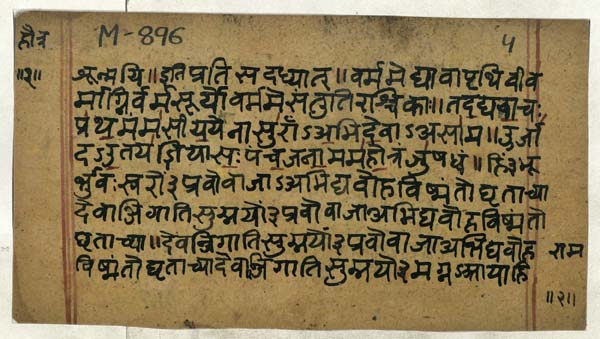 हौत्र
M-896
५
॥२॥
श्रून्मयि॥ इति प्रति सदध्यात्॥ वर्ममेद्यावापृथिवीव
र्माग्निर्वर्मसूर्यो वर्ममेसंतु तिरश्चिकाः॥ तदद्यवाचः
प्रथमंमसीययेनासुराँऽअभिदेवाऽअसाम॥ ऊर्जा
दऽउतयज्ञियासः पंचजनाममहोत्रंजुषध्वं॥ हिं३भू
र्भुवःस्वरों३प्रवोवाजाऽअभिद्यवोहविष्मंतोघृताच्या
देवाञ्जिगातिसुम्नयों३प्रवोवाजाअभिद्यवोहविष्मंतो
घृताच्या॥ देवाञ्जिगातिसुम्नयों३प्रवोवाजाअभिद्यवोह
राम
विष्मंतोघृताच्यादेवाञ्जिगातिसुम्नयो३मग्नऽआयाहि
॥२॥